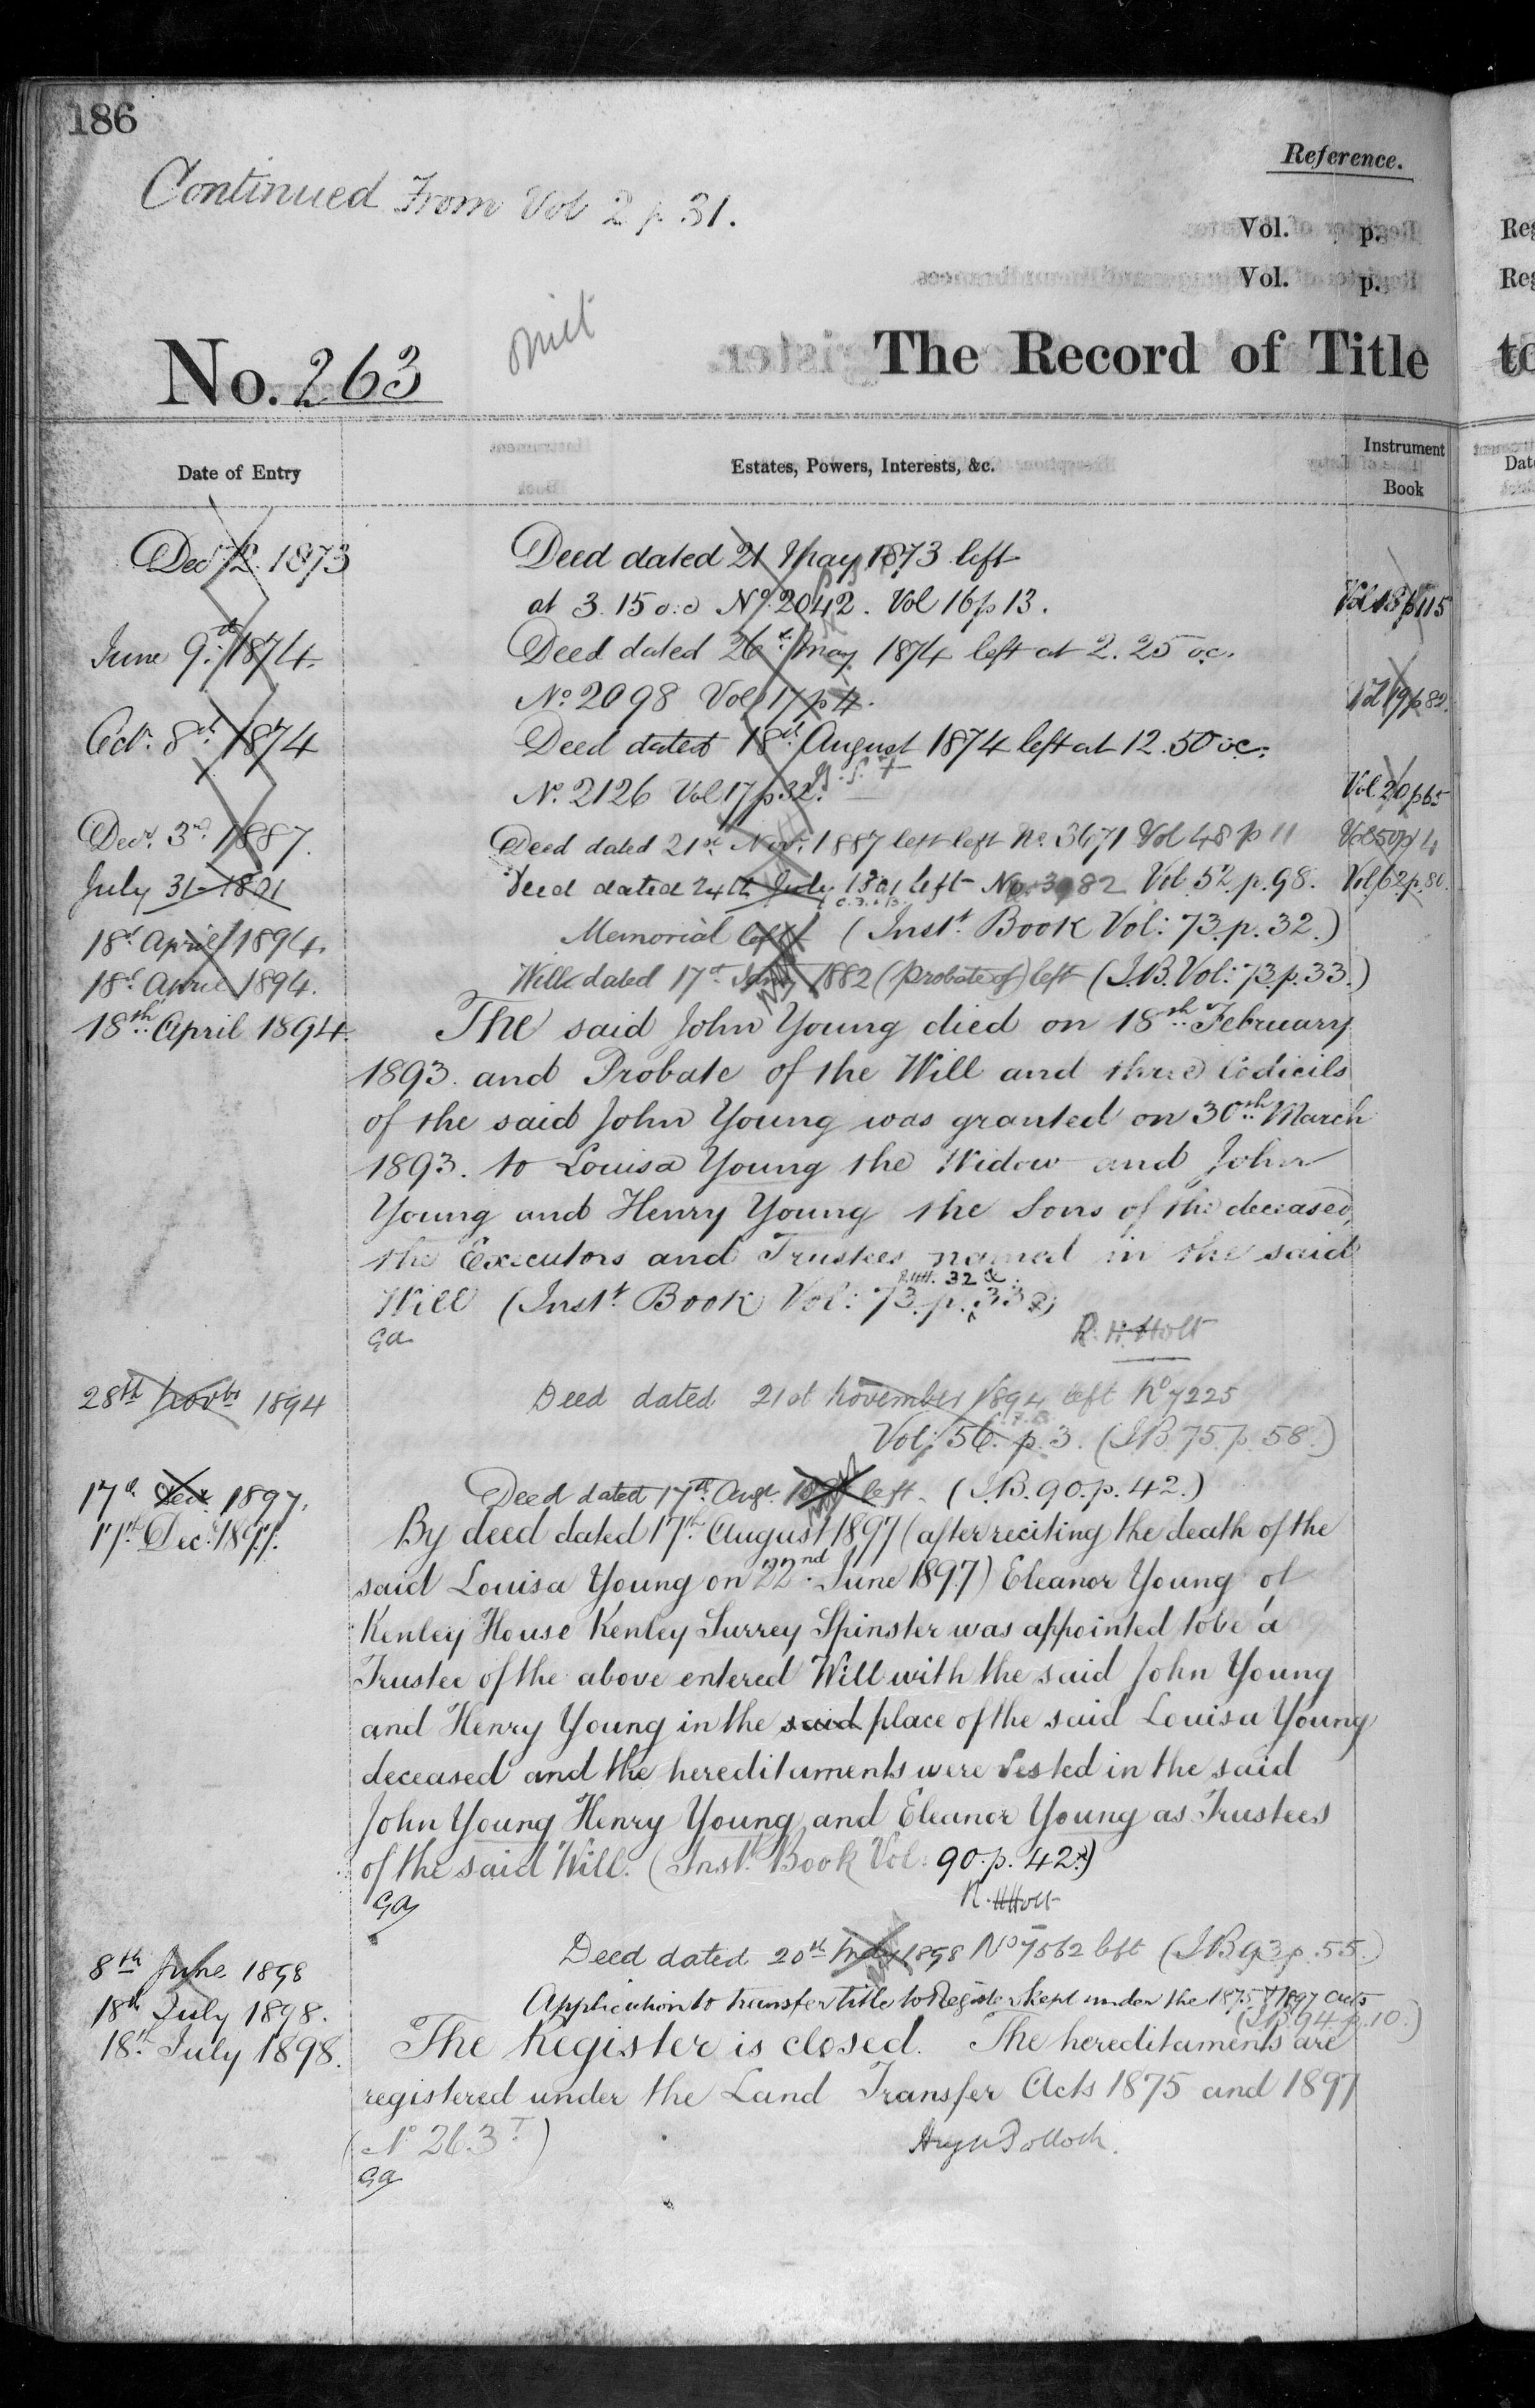 186
Continued From Vol 2 p 31.
Reference.
Vol. p.
Vol. p.
omit
No. 263 The Record of Title
Date of Entry Estates, Powers, Interests, &c. Instrument Book
Decr 12. 1873 Deed dated 21 May 1873 left
at 3.15 o.c No. 2042. Vol 16 p 13. Vol 18 p 115
June 9th 1874. Deed dated 26th May 1874 left at 2.25 o.c.
No. 2098 Vol 17 p 4. Vol 19 p 82.
Octr. 8th 1874 Deed dated 18th August 1874 left at 12.50 o.c.
No. 2126 Vol 17 p 32. Vol 20 p 65
Decr. 3rd 1887. Deed dated 21st Novr. 1887 left left No. 3671 Vol 48 p 11 Vol 50 p 4
July 31 1891 Deed dated 24th July 1891 left No. 3982 Vol 52. p. 98. Vol 62 p. 80.
18th April 1894. Memorial left (Inst. Book Vol: 73. p. 32.)
18th April 1894. Will dated 17th 1882 (probate of) left (I.B. Vol: 73. p. 33.)
18th April 1894. The said John Young died on 18th February
1893. and Probate of the Will and three Codicils
of the said John Young was granted on 30th March
1893. to Louisa Young the Widow and John
Young and Henry Young the Sons of the deceased,
the Executors and Trustees named in the said
Will (Inst. Book Vol: 73. p. 32 & 33.)
GA R. H. Holt
28th Novbr 1894 Deed dated 21st November 1894 left No 7225
Vol: 56. p. 3. (I.B. 75. p. 58.)
17th Decr 1897. Deed dated 17th Augt. left. (I.B. 90. p. 42.)
17th Decr. 1897. By deed dated 17th August 1897 (after reciting the death of the
said Louisa Young on 22nd June 1897) Eleanor Young of
Kenley House Kenley Surrey Spinster was appointed to be a
Trustee of the above entered Will with the said John Young
and Henry Young in the said place of the said Louisa Young
deceased and the hereditaments were vested in the said
John Young Henry Young and Eleanor Young as Trustees
of the said Will. (Inst. Book Vol: 90. p. 42.)
GA R. H Holt
8th June 1898 Deed dated 20th May 1898 No 7562 left (I.B 93 p. 55.)
18th July 1898. Application to transfer title to Register kept under the 1875 & 1897 Acts
(I.B. 94 p. 10.)
18th July 1898. The Register is closed. The hereditaments are
registered under the Land Transfer Acts 1875 and 1897
(No 263 T.) Hugh Pollock.
GA
Reg
Reg
to
Dat